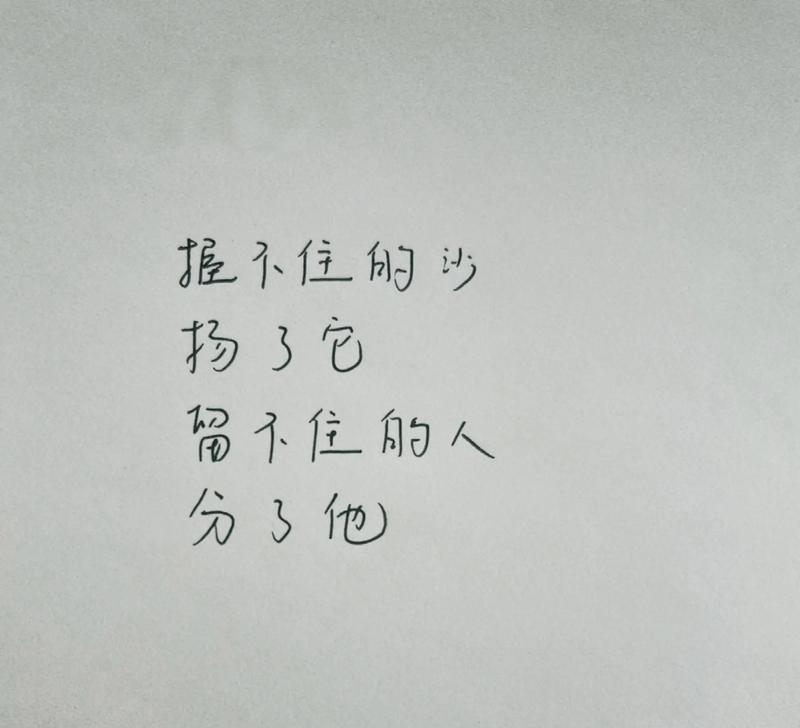 握不住的沙
扬了它
留不住的人
分了他